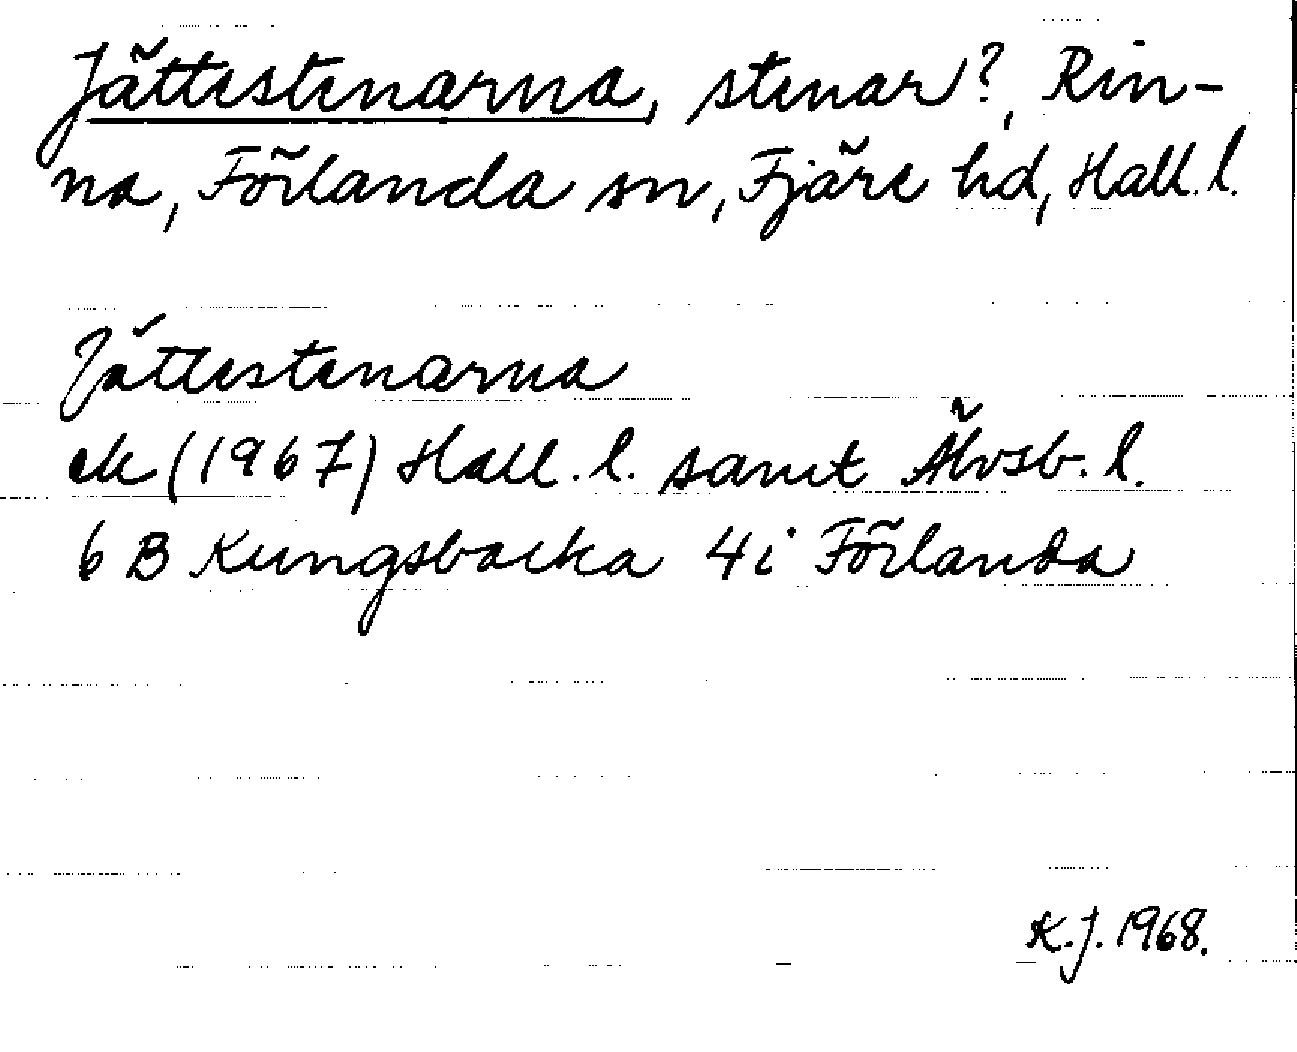 Jättestenarna, stenar?, Rin-
na, Förlanda sn, Fjäre hd, Hall. l.
Jättestenarna
ek (1967) Hall. l. samt Älvsb. l.
6 B Kungsbacka 4 i Förlanda
K.J. 1968.